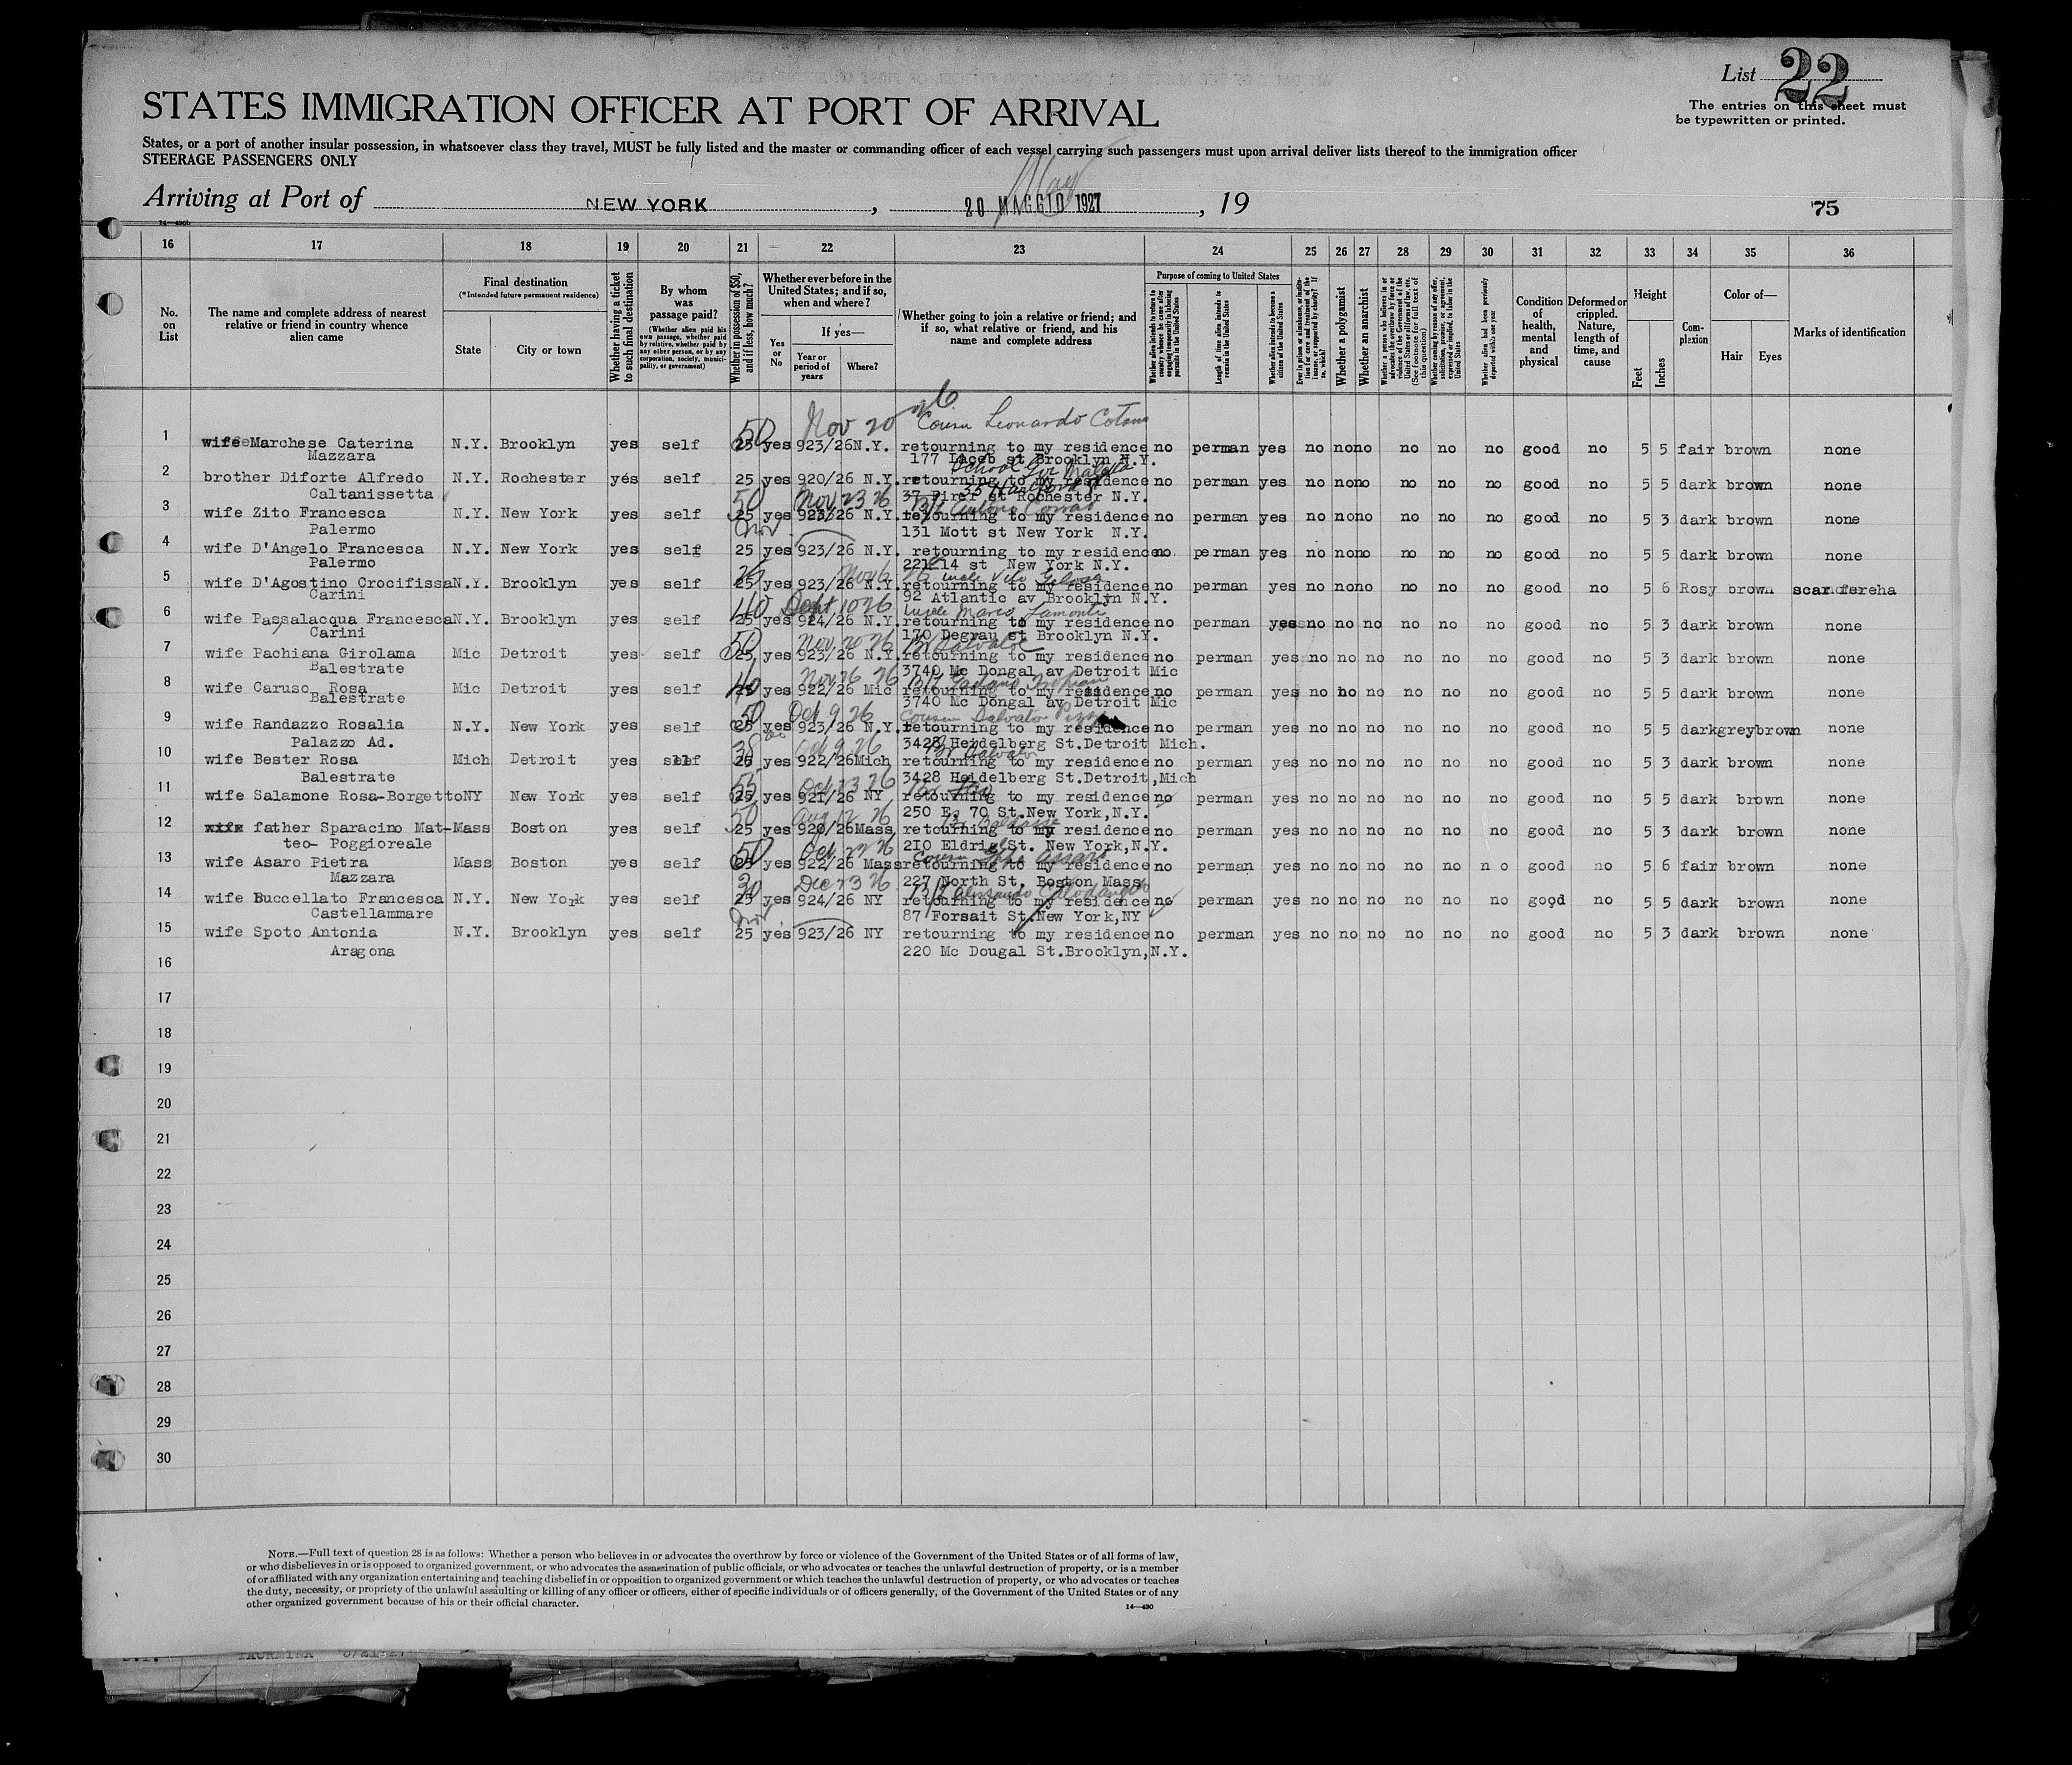 List 22
The entries on this sheet must
be typewritten or printed.
STATES IMMIGRATION OFFICER AT PORT OF ARRIVAL
States, or a port of another insular possession, in whatsoever class they travel, MUST be fully listed and the master or commanding officer of each vessel carrying such passengers must upon arrival deliver lists thereof to the immigration officer
STEERAGE PASSENGERS ONLY
May
Arriving at Port of NEW YORK, 20 MAGGIO 1927, 19
75
14—430b
16 17 18 19 20 21 22 23 24 25 26 27 28 29 30 31 32 33 34 35 36
No. on List
The name and complete address of nearest relative or friend in country whence alien came
Final destination
(*Intended future permanent residence)
State
City or town
Whether having a ticket to such final destination
By whom was passage paid?
(Whether alien paid his own passage, whether paid by relative, whether paid by any other person, or by any corporation, society, municipality, or government)
Whether in possession of $50, and if less, how much?
Whether ever before in the United States; and if so, when and where?
Yes or No
If yes—
Year or period of years
Where?
Whether going to join a relative or friend; and if so, what relative or friend, and his name and complete address
Purpose of coming to United States
Whether alien intends to return to country whence he came after engaging temporarily in laboring pursuits in the United States
Length of time alien intends to remain in the United States
Whether alien intends to become a citizen of the United States
Ever in prison or almshouse, or institution for care and treatment of the insane, or supported by charity? If so, which?
Whether a polygamist
Whether an anarchist
Whether a person who believes in or advocates the overthrow by force or violence of the Government of the United States or all forms of law, etc. (See footnote for full text of this question)
Whether coming by reason of any offer, solicitation, promise, or agreement, expressed or implied, to labor in the United States
Whether alien had been previously deported within one year
Condition of health, mental and physical
Deformed or crippled. Nature, length of time, and cause
Height
Feet
Inches
Complexion
Color of—
Hair
Eyes
Marks of identification
Nov 20 26
Cousin Leonardo
1 wife Marchese Caterina N.Y. Brooklyn yes self 25 50 yes 923/26 N.Y. retourning to my residence no perman yes no no no no no no good no 5 5 fair brown none
Mazzara 177 st Brooklyn N.Y.
2 brother Diforte Alfredo N.Y. Rochester yes self 25 yes 920/26 N.Y. retourning to my residence no perman yes no no no no no no good no 5 5 dark brown none
Caltanissetta 37 st Rochester N.Y.
50 Nov 23 26
3 wife Zito Francesca N.Y. New York yes self 25 yes 923/26 N.Y. retourning to my residence no perman yes no no no no no no good no 5 3 dark brown none
Palermo 131 Mott st New York N.Y.
4 wife D'Angelo Francesca N.Y. New York yes self 25 yes 923/26 N.Y. retourning to my residence no perman yes no no no no no no good no 5 5 dark brown none
Palermo 221 E 14 st New York N.Y.
Nov 6 26 uncle Vito
5 wife D'Agostino Crocifissa N.Y. Brooklyn yes self 25 yes 923/26 N.Y. retourning to my residence no perman yes no no no no no no good no 5 6 Rosy brown scar
Carini 92 Atlantic av Brooklyn N.Y.
40 Sept 10 26 uncle Marco
6 wife Passalacqua Francesca N.Y. Brooklyn yes self 25 yes 924/26 N.Y. retourning to my residence no perman yes no no no no no no good no 5 3 dark brown none
Carini 170 Degrau st Brooklyn N.Y.
50 Nov 20 26
7 wife Pachiana Girolama Mic Detroit yes self 25 yes 923/26 N.Y. retourning to my residence no perman yes no no no no no no good no 5 3 dark brown none
Balestrate 3740 Mc Dongal av Detroit Mic
40 Nov 26 26
8 wife Caruso Rosa Mic Detroit yes self yes 922/26 Mic retourning to my residence no perman yes no no no no no no good no 5 5 dark brown none
Balestrate 3740 Mc Dongal av Detroit Mic
50 Oct 9 26 Cousin Salvator
9 wife Randazzo Rosalia N.Y. New York yes self 25 yes 923/26 N.Y. retourning to my residence no perman yes no no no no no no good no 5 5 dark grey brown none
Palazzo Ad. 3428 Heidelberg St. Detroit Mich.
38 Oct 9 26
10 wife Bester Rosa Mich Detroit yes self yes 922/26 Mich retourning to my residence no perman yes no no no no no no good no 5 3 dark brown none
Balestrate 3428 Heidelberg St. Detroit, Mich
55 Oct 23 26
11 wife Salamone Rosa-Borgetto NY New York yes self 25 yes 921/26 NY retourning to my residence no perman yes no no no no no no good no 5 5 dark brown none
250 E. 70 St. New York, N.Y.
50 Aug 12 26
12 father Sparacino Mat- Mass Boston yes self 25 yes 920/26 Mass retourning to my residence no perman yes no no no no no no good no 5 3 dark brown none
teo- Poggioreale 210 Eldrig St. New York, N.Y.
50
13 wife Asaro Pietra Mass Boston yes self yes 922/26 Mass retourning to my residence no perman yes no no no no no no good no 5 6 fair brown none
Mazzara 227 North St. Boston Mass
30 Dec 23 26
14 wife Buccellato Francesca N.Y. New York yes self 25 yes 924/26 NY retourning to my residence no perman yes no no no no no no good no 5 5 dark brown none
Castellammare 87 Forsait St. New York, NY
15 wife Spoto Antonia N.Y. Brooklyn yes self 25 yes 923/26 NY retourning to my residence no perman yes no no no no no no good no 5 3 dark brown none
Aragona 220 Mc Dougal St. Brooklyn, N.Y.
16
17
18
19
20
21
22
23
24
25
26
27
28
29
30
NOTE.—Full text of question 28 is as follows: Whether a person who believes in or advocates the overthrow by force or violence of the Government of the United States or of all forms of law,
or who disbelieves in or is opposed to organized government, or who advocates the assassination of public officials, or who advocates or teaches the unlawful destruction of property, or is a member
of or affiliated with any organization entertaining and teaching disbelief in or opposition to organized government or which teaches the unlawful destruction of property, or who advocates or teaches
the duty, necessity, or propriety of the unlawful assaulting or killing of any officer or officers, either of specific individuals or of officers generally, of the Government of the United States or of any
other organized government because of his or their official character.
14—430